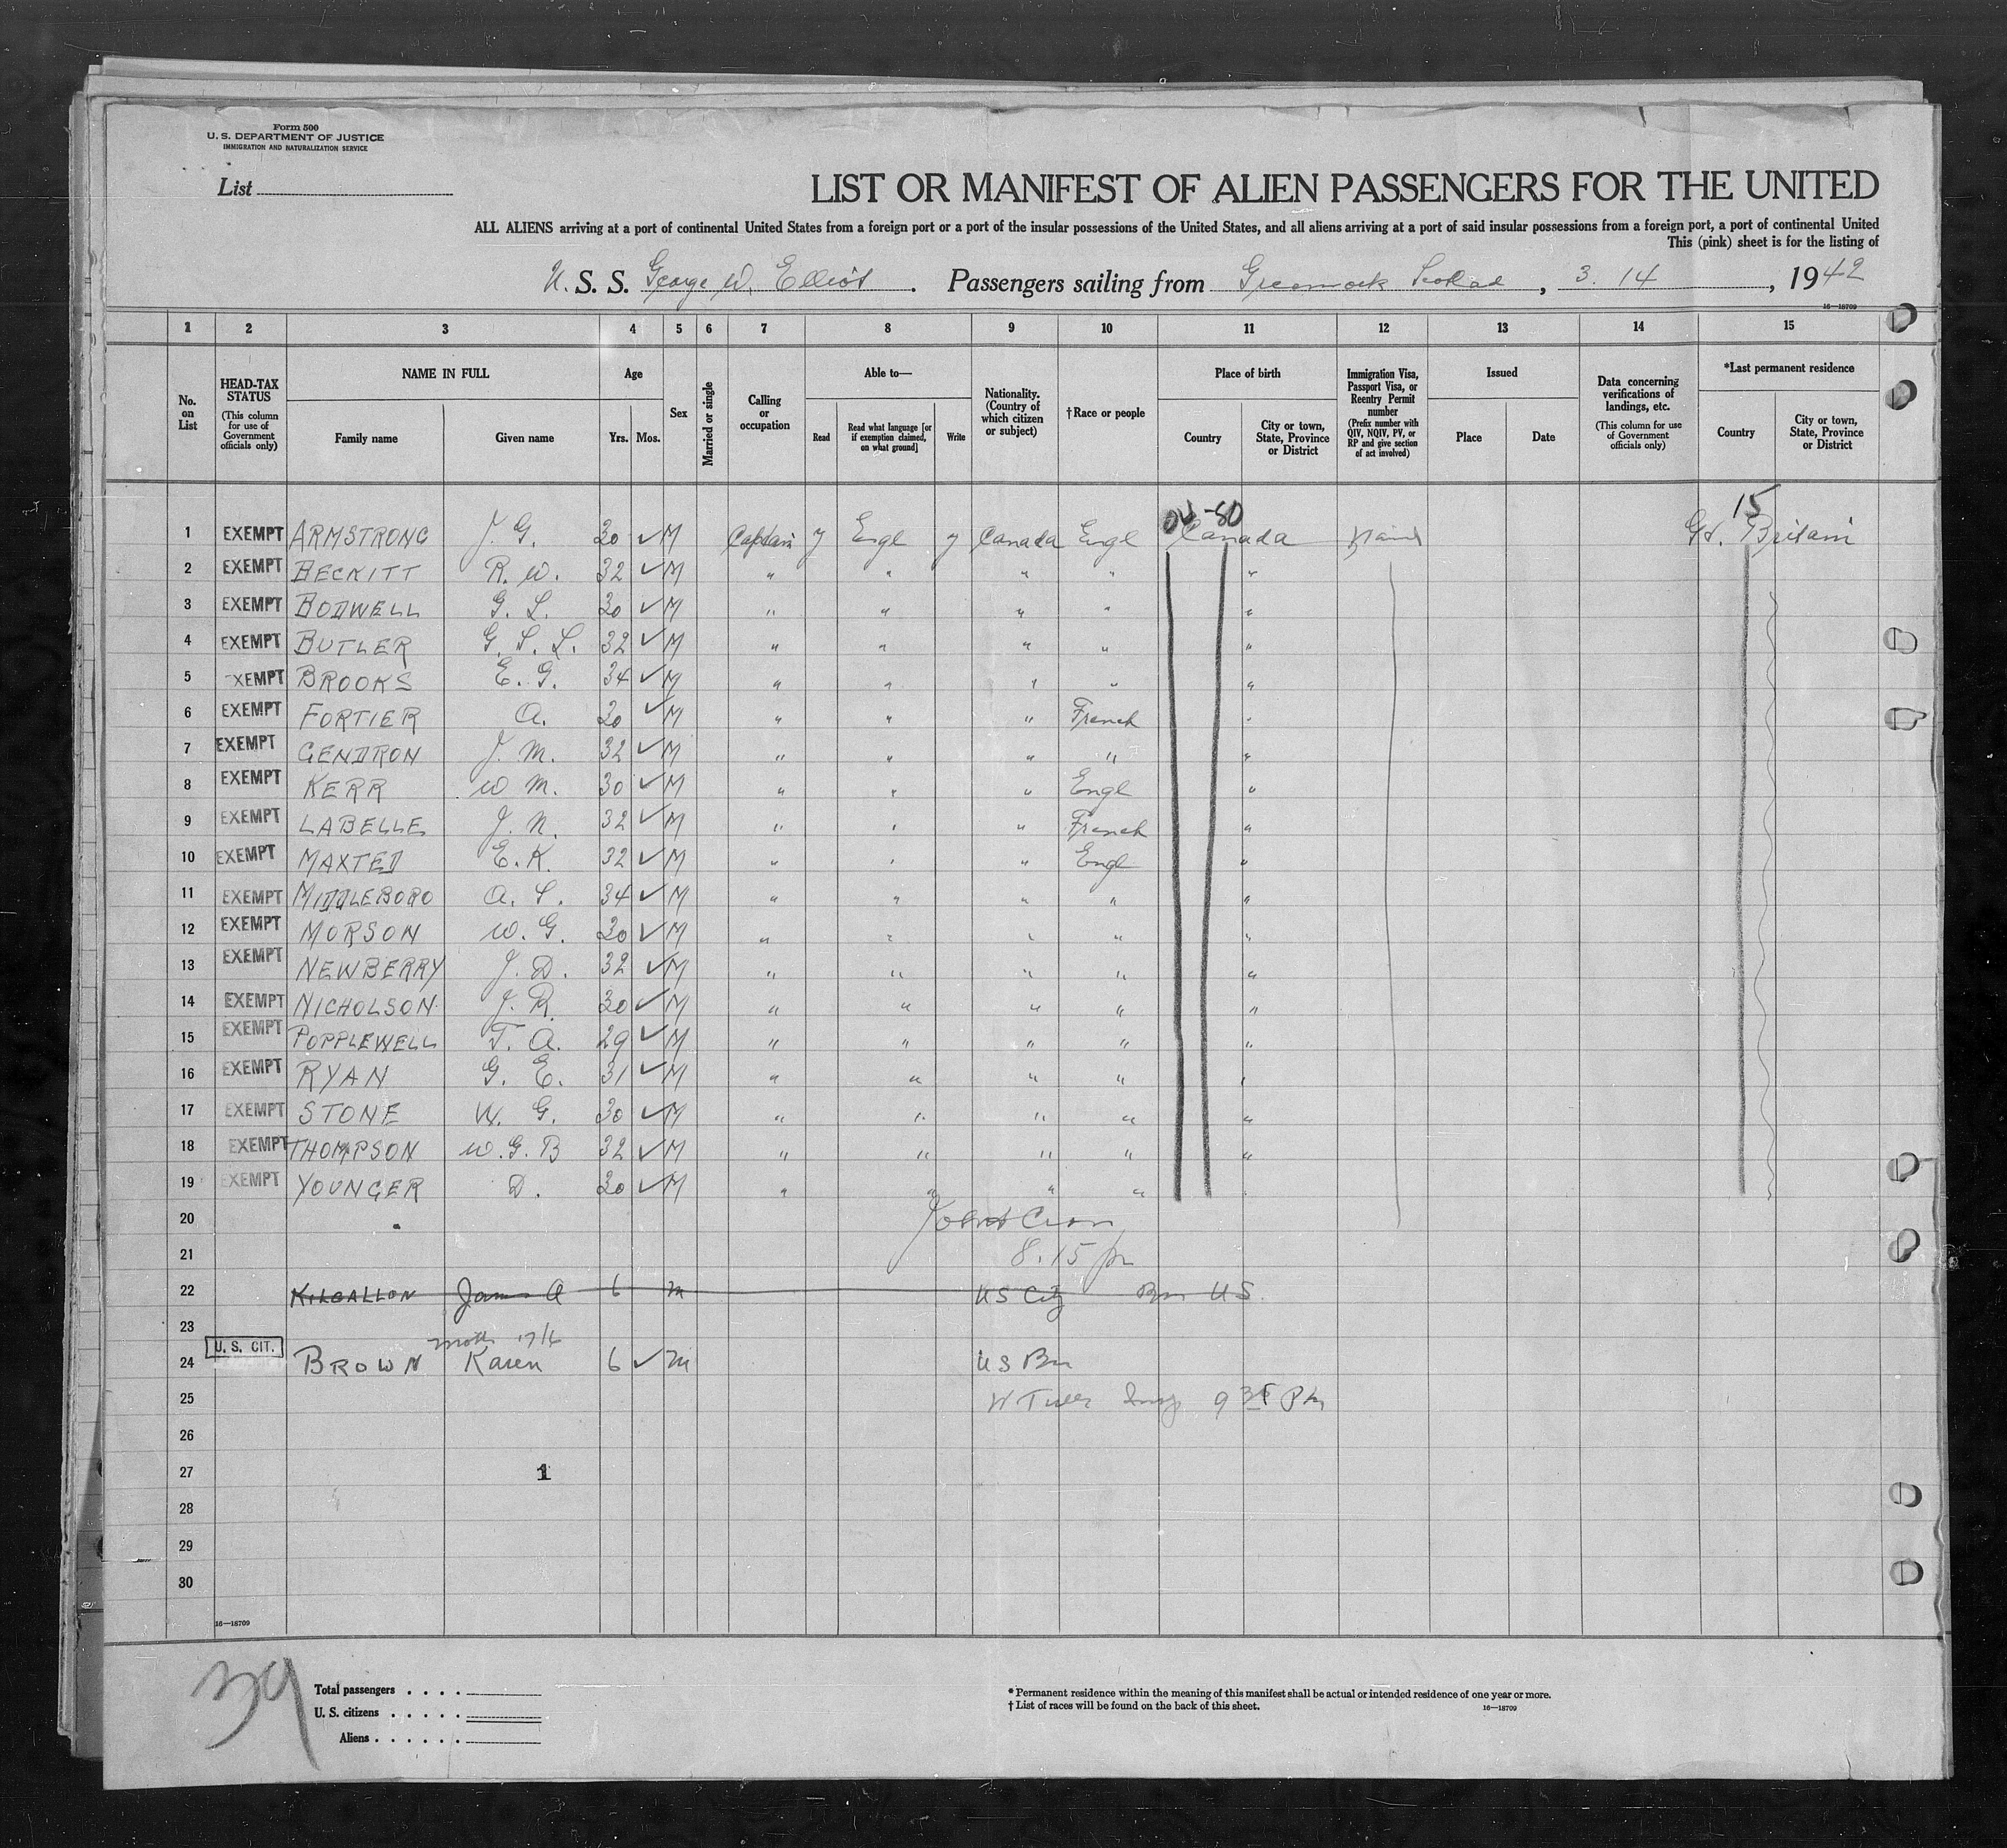 Form 500
U. S. DEPARTMENT OF JUSTICE
IMMIGRATION AND NATURALIZATION SERVICE
List
LIST OR MANIFEST OF ALIEN PASSENGERS FOR THE UNITED
ALL ALIENS arriving at a port of continental United States from a foreign port or a port of the insular possessions of the United States, and all aliens arriving at a port of said insular possessions from a foreign port, a port of continental United
This (pink) sheet is for the listing of
U. S. S. George W. Elliot . Passengers sailing from Greenock , 3. 14 , 1942
16—18709
1 2 3 4 5 6 7 8 9 10 11 12 13 14 15
No. on List
HEAD-TAX STATUS (This column for use of Government officials only)
NAME IN FULL
Family name Given name
Age
Yrs. Mos.
Sex
Married or single
Calling or occupation
Able to—
Read Read what language [or if exemption claimed, on what ground] Write
Nationality. (Country of which citizen or subject)
†Race or people
Place of birth
Country City or town, State, Province or District
Immigration Visa, Passport Visa, or Reentry Permit number (Prefix number with QIV, NQIV, PV, or RP and give section of act involved)
Issued
Place Date
Data concerning verifications of landings, etc. (This column for use of Government officials only)
*Last permanent residence
Country City or town, State, Province or District
15
1 EXEMPT ARMSTRONG J. G. 30 ✓ M Captain y Engl y Canada Engl Canada Gt. Britain
2 EXEMPT BECKITT R. W. 32 ✓ M " " " " "
3 EXEMPT BODWELL G. L. 30 ✓ M " " " " "
4 EXEMPT BUTLER G. S. L. 32 ✓ M " " " " "
5 EXEMPT BROOKS E. G. 34 ✓ M " " " " "
6 EXEMPT FORTIER A. 30 ✓ M " " " French "
7 EXEMPT GENDRON J. M. 32 ✓ M " " " " "
8 EXEMPT KERR W M. 30 ✓ M " " " Engl "
9 EXEMPT LABELLE J. N. 32 ✓ M " " " French "
10 EXEMPT MAXTED E. K. 32 ✓ M " " " Engl "
11 EXEMPT MIDDLEBORO A. S. 34 ✓ M " " " " "
12 EXEMPT MORSON W. G. 30 ✓ M " " " " "
13 EXEMPT NEWBERRY J. D. 32 ✓ M " " " " "
14 EXEMPT NICHOLSON J. R. 30 ✓ M " " " " "
15 EXEMPT POPPLEWELL T. A. 29 ✓ M " " " " "
16 EXEMPT RYAN G. E. 31 ✓ M " " " " "
17 EXEMPT STONE W. G. 30 ✓ M " " " " "
18 EXEMPT THOMPSON W. G. B 32 ✓ M " " " " "
19 EXEMPT YOUNGER D. 30 ✓ M " " " " "
20
21 8.15 pm
22 KILGALLON James A 6 m US City Bn US
23
24 U. S. CIT. BROWN Karen 6 ✓ m US Bn
25 9 35 Pm
26
27 1
28
29
30
16—18709
39
Total passengers . . . .
U. S. citizens . . . . .
Aliens . . . . . .
* Permanent residence within the meaning of this manifest shall be actual or intended residence of one year or more.
† List of races will be found on the back of this sheet. 16—18709